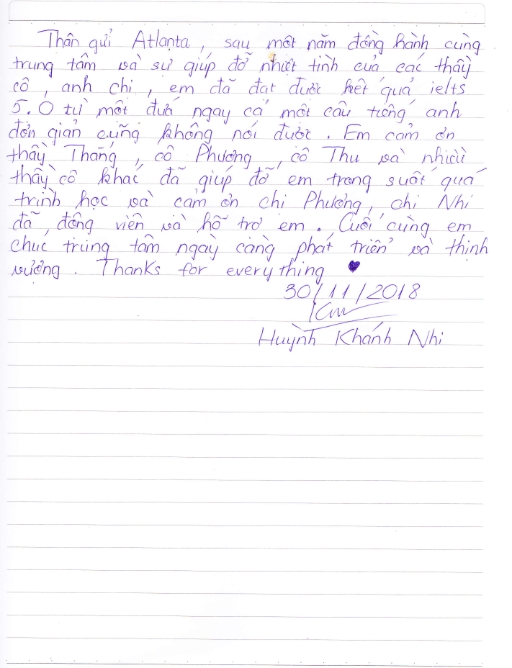 Thân gửi Atlanta, sau một năm đồng hành cùng
trung tâm và sự giúp đỡ nhiệt tình của các thầy
cô, anh chị, em đã đạt được kết quả ielts
5.0 từ một đứa ngay cả một câu tiếng anh
đơn giản cũng không nói được. Em cảm ơn
thầy Thắng, cô Phương, cô Thu và nhiều
thầy cô khác đã giúp đỡ em trong suốt quá
trình học và cảm ơn chị Phương, chị Nhi
đã động viên và hỗ trợ em. Cuối cùng em
chúc trung tâm ngày càng phát triển và thịnh
vượng. Thanks for everything ♥
30/11/2018
Huỳnh Khánh Nhi